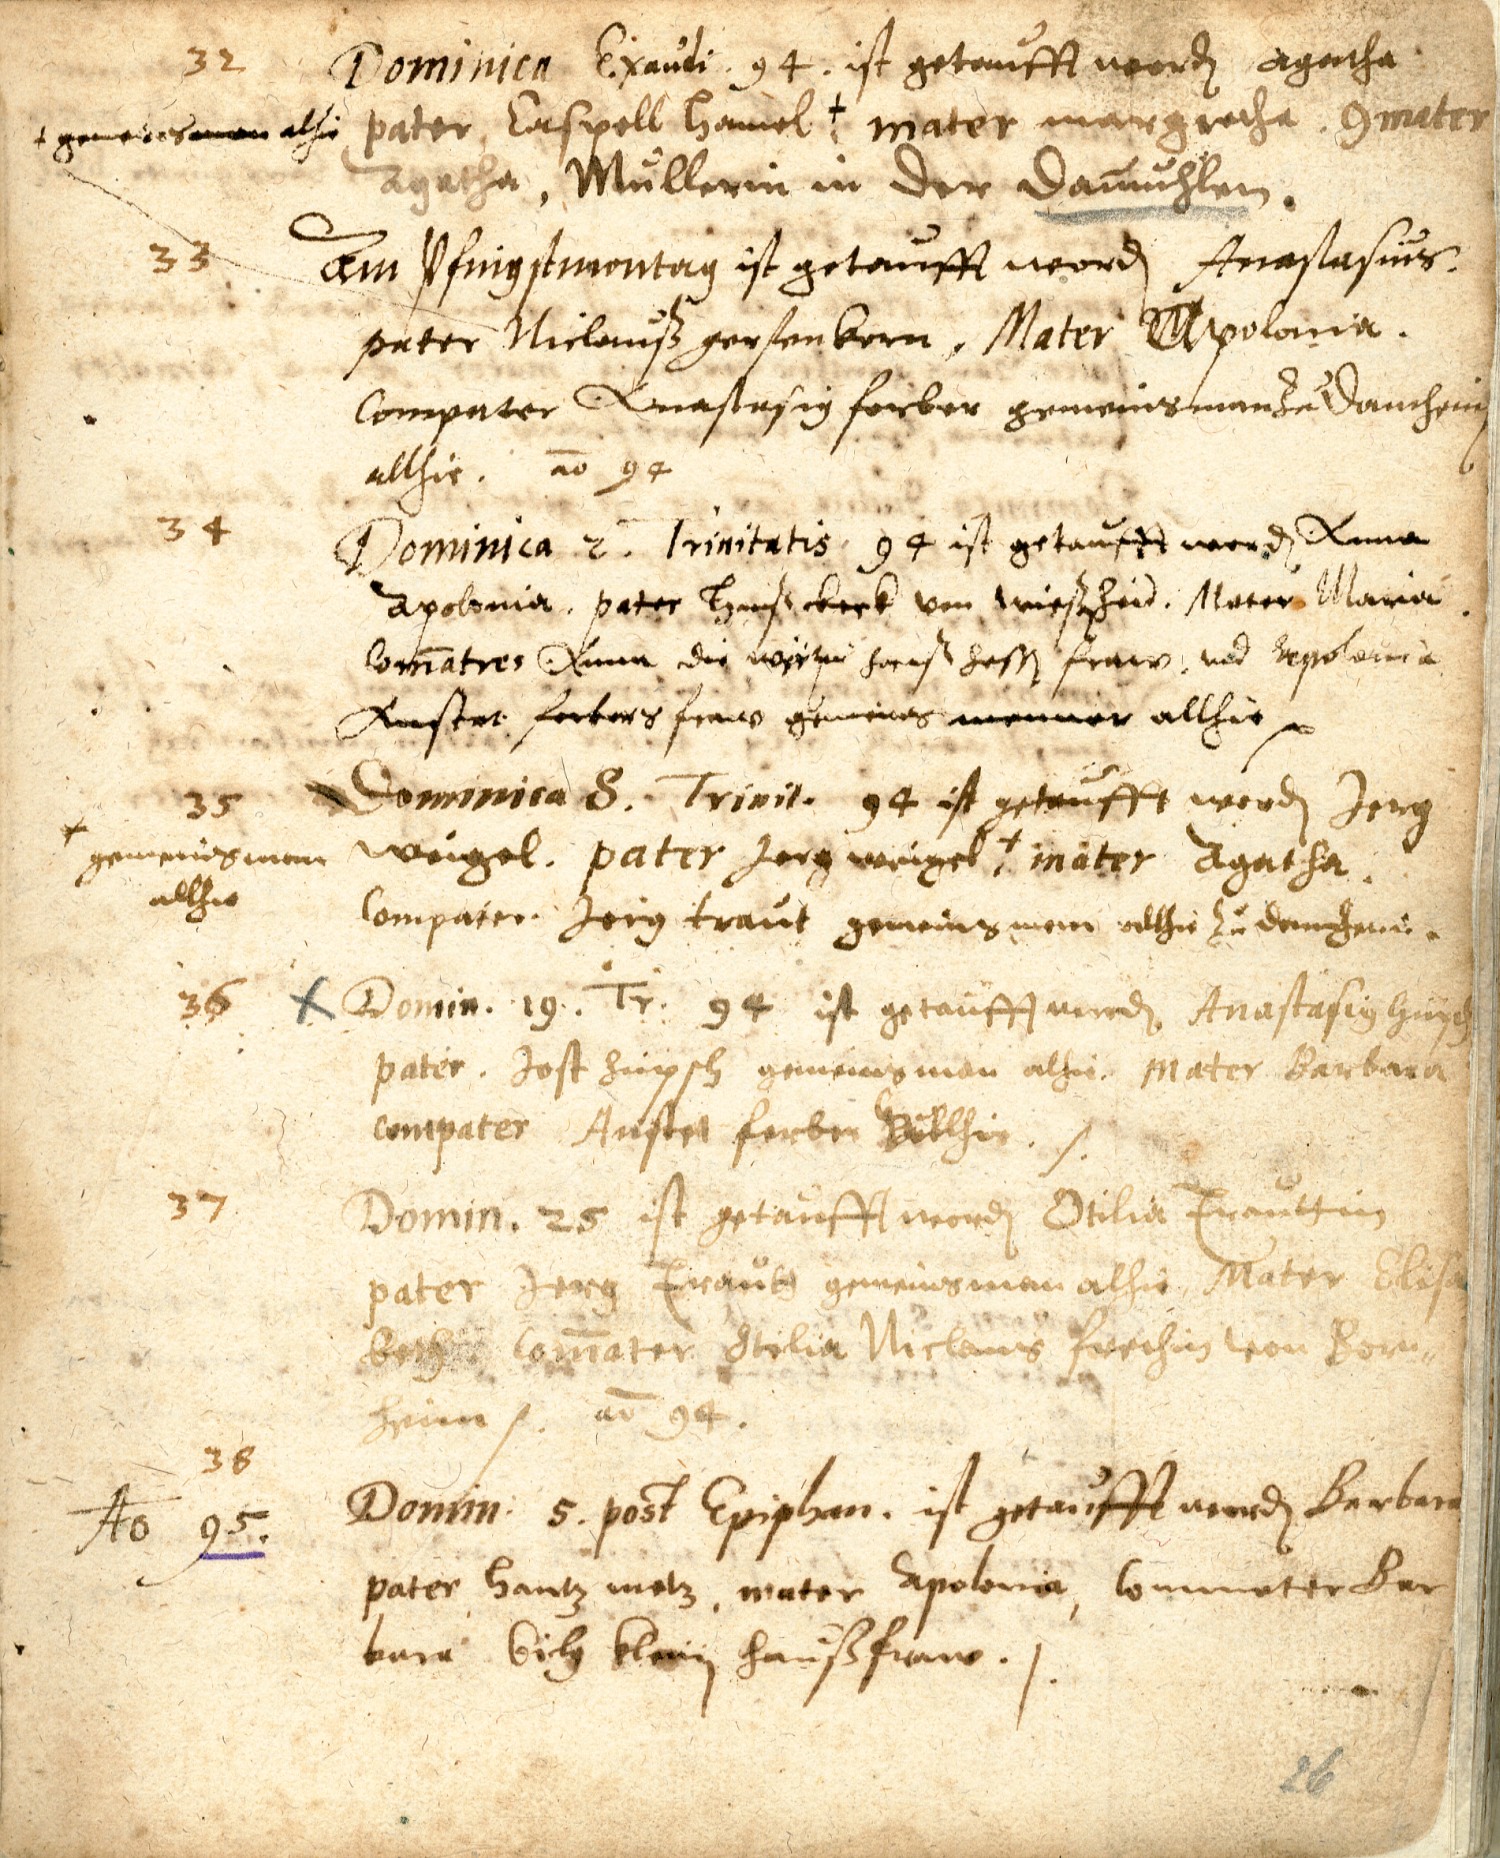 32 Dominica Exaudi. 94. ist getaufft word Agatha
+ gemeinsman alhie pater Caspell Hamel + mater margretha. 9mater
Agatha, Mullerin in der Damuhlen.
33 Am Pfingstmontag ist getaufft word Anastasius.
pater Niclauß gersenkorn, Mater Apolonia.
Compater Anastasig ferber gemeinsman zu Damhein
allhie. ao 94
34 Dominica 2. Trinitatis 94 ist getaufft word Anna
Apolonia. pater von . Mater Maria
Commatres Anna die hanß heß fraw, und Apolonia
Anstet ferbers fraw gemeins menner allhie
35 Dominica 8. Trinit. 94 ist getaufft word Jerg
+ gemeinsman weigel. pater Jerg weigel + mater Agatha.
allhie Compater. Jerg traut gemeinsman allhie zu damhein.
36 x Domin. 19. Tr. 94 ist getaufft word Anastasig
pater. Jost hüpsch gemeinsman alhie. Mater Barbara
compater Anstet ferber allhie.
37 Domin. 25 ist getaufft word Otilia Trauttin
pater Jerg Trautt gemeinsman alhie, Mater Elisa
beth. Commater Otilia Niclaus frechin von Born
heim. ao 94.
38
Ao 95. Domin. 5. post Epiphan. ist getaufft word Barbara
pater hantz metz, mater Apolonia, Commater Bar
bara haußfraw.
26